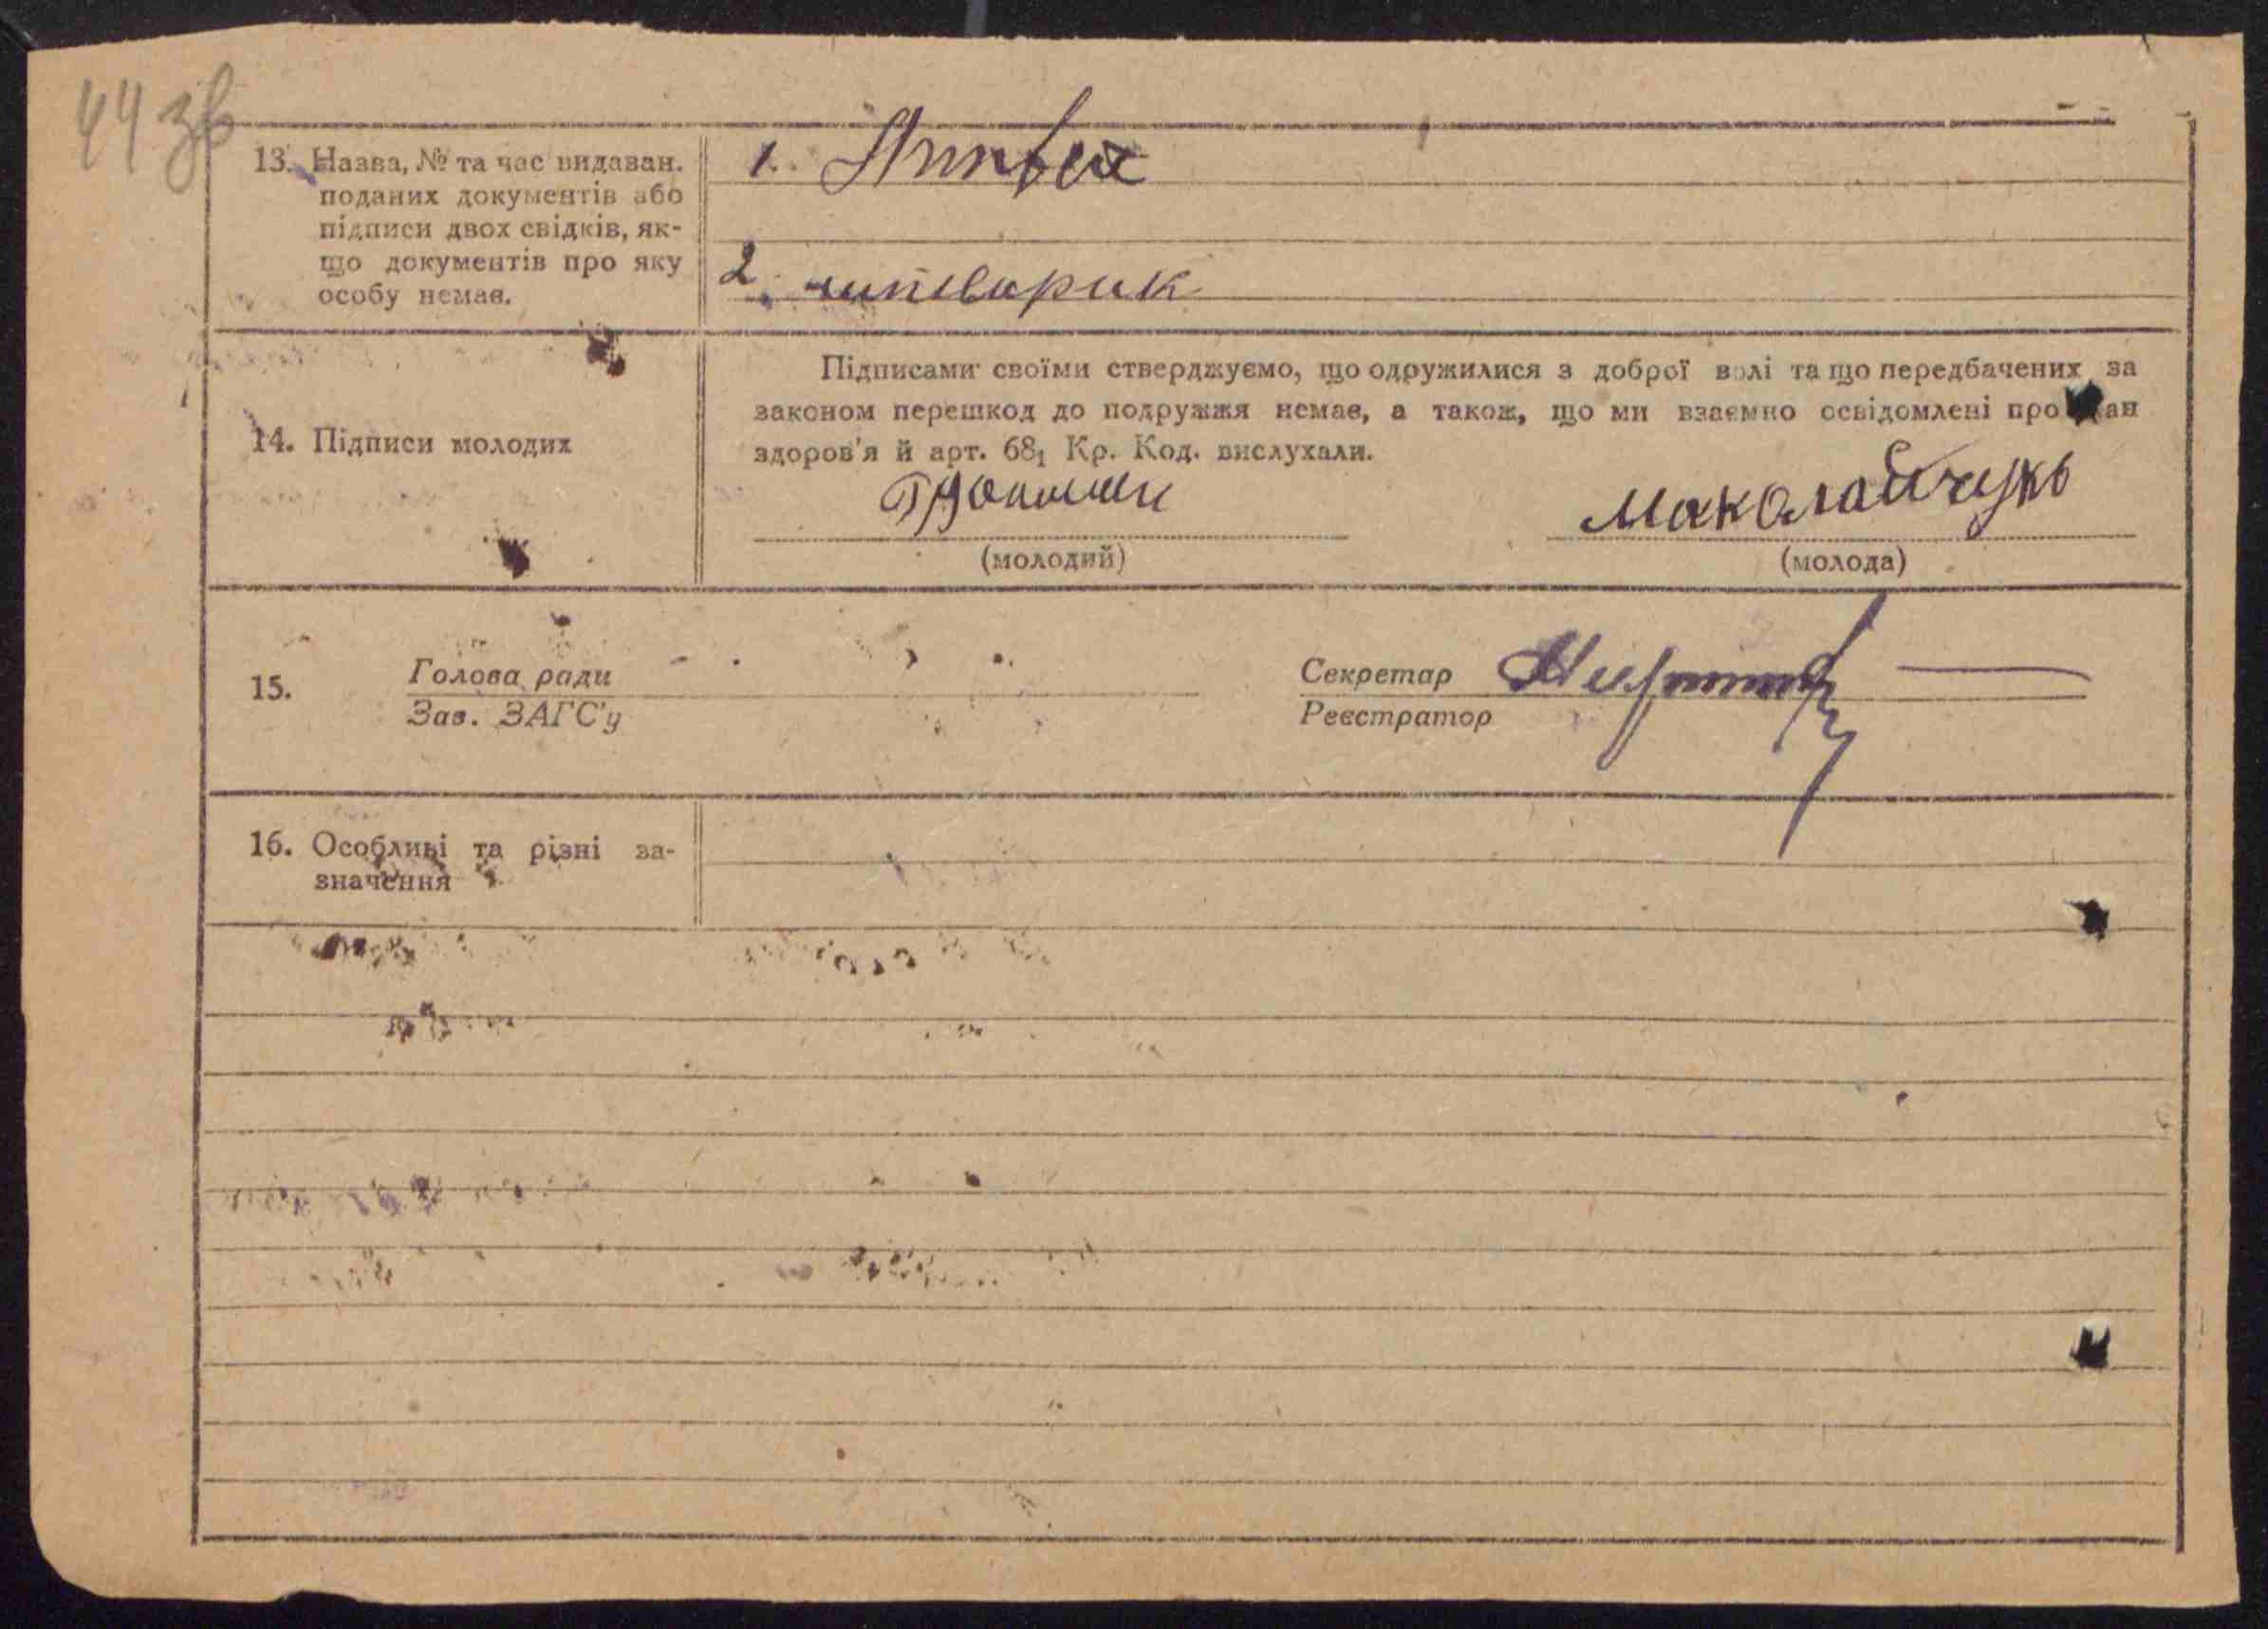 44 зв
13. Назва, № та час видаван.
поданих документів або
підписи двох свідків, як-
що документів про яку
особу немає.
1.
2.
14. Підписи молодих
Підписами своїми стверджуємо, що одружилися з доброї волі та що передбачених за
законом перешкод до подружжя немає, а також, що ми взаємно освідомлені про
здоров'я й арт. 68₁ Кр. Код. вислухали.
Маколайчукь
(молодий)
(молода)
15.
Голова ради
Зав. ЗАГС'у
Секретар
Реєстратор
16. Особливі та різні за-
значення